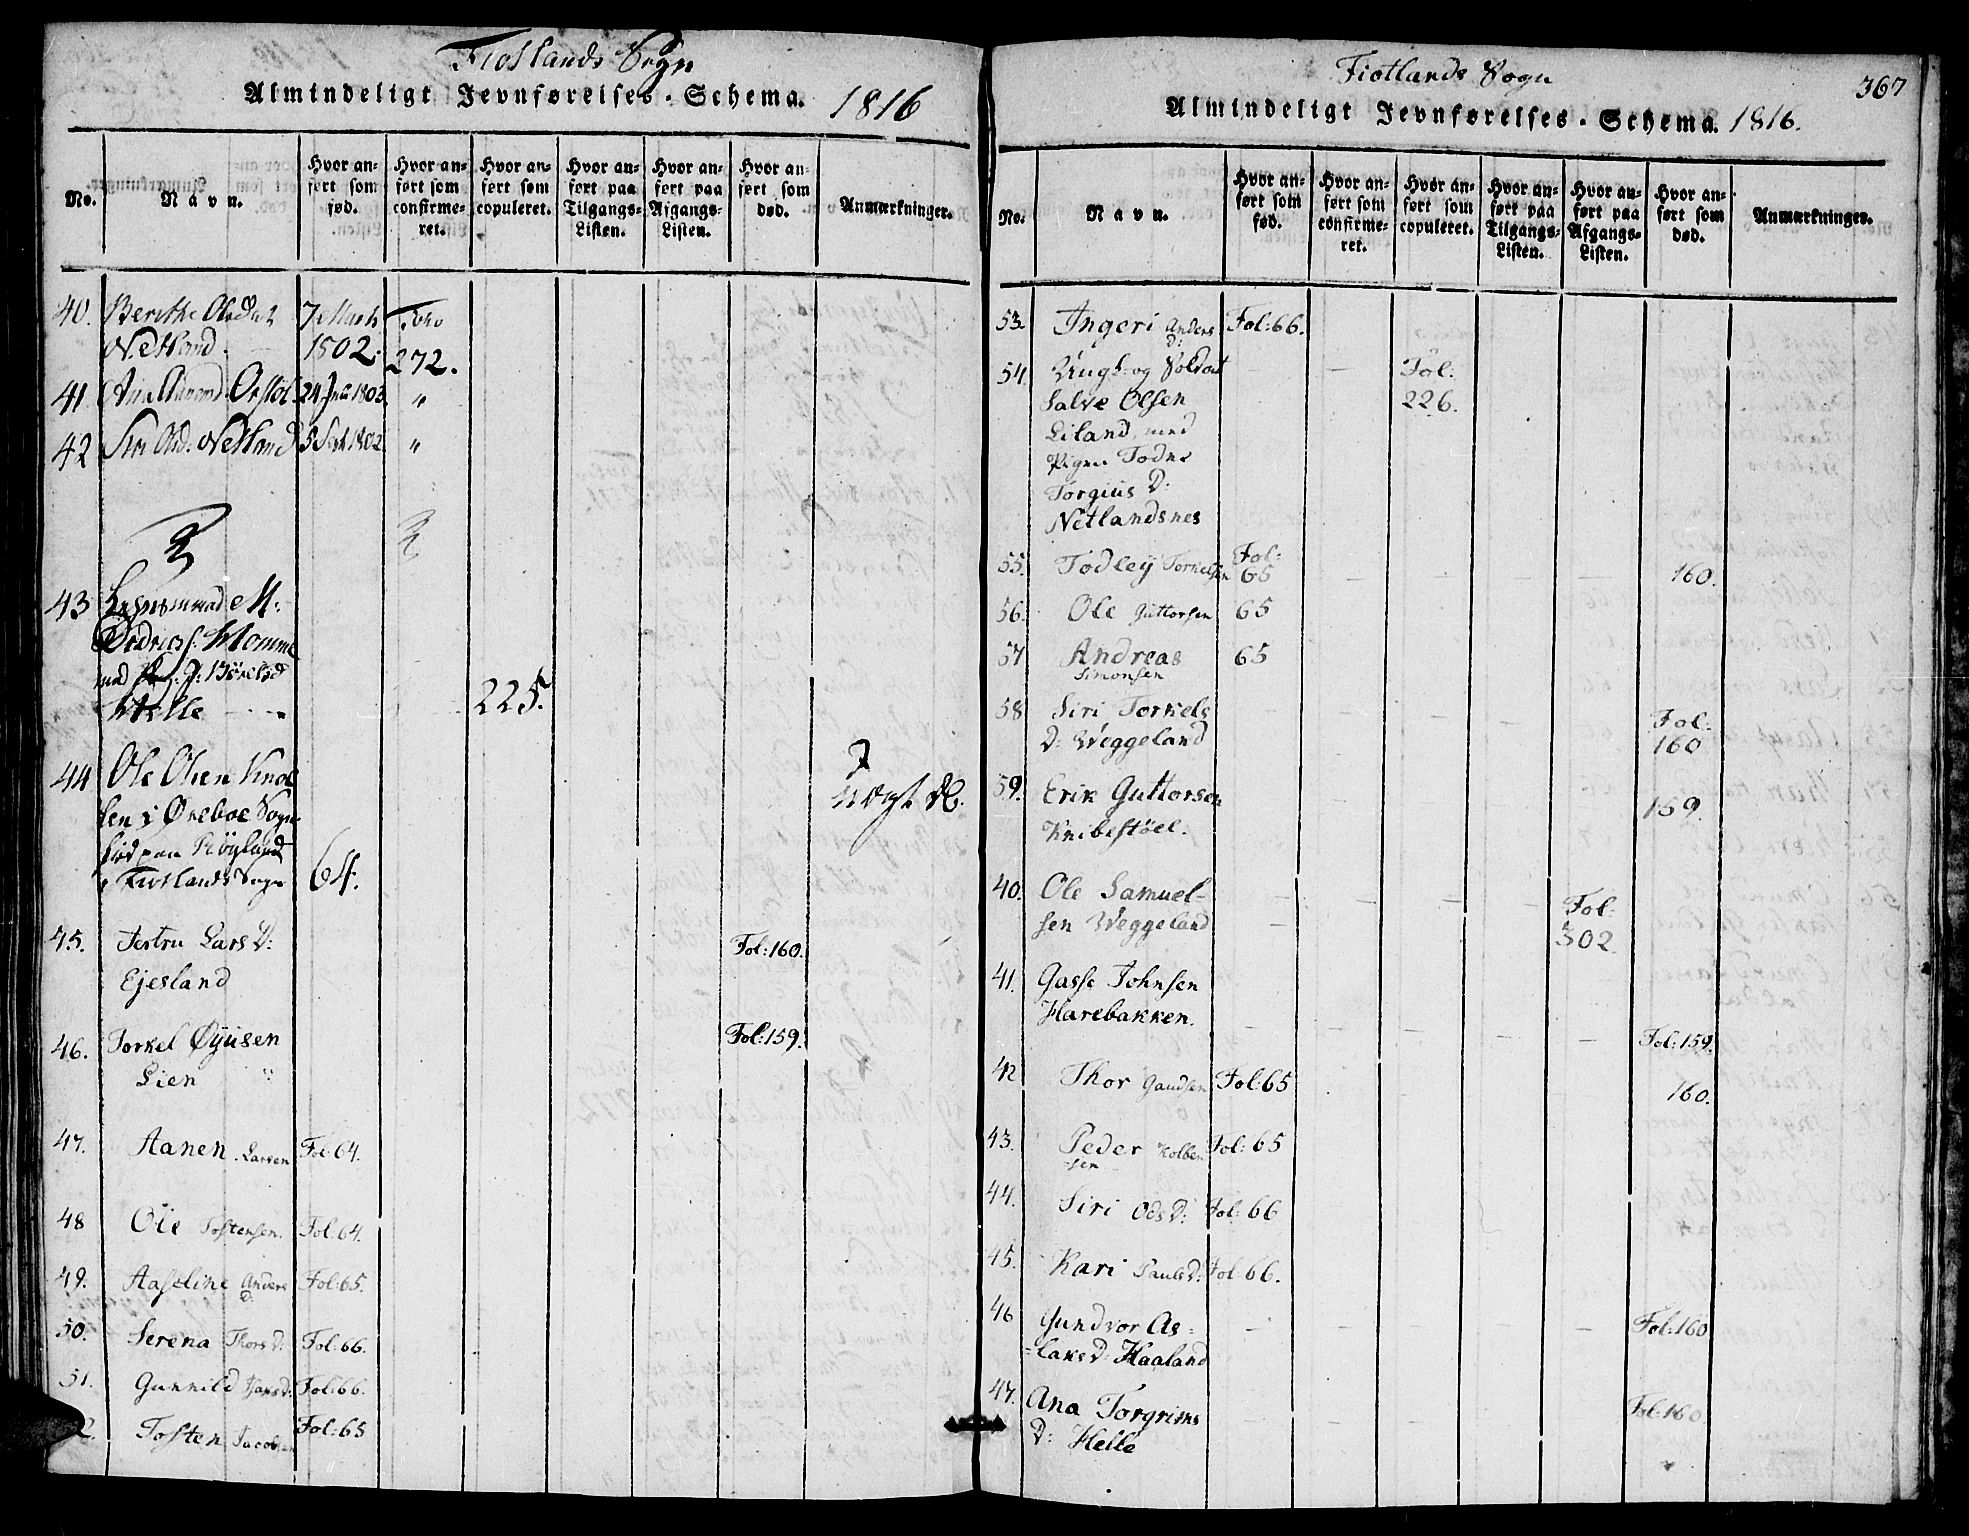 Fiotlands Sogn
Almindeligt Jevnførelses-Schema. 1816
No.
Navn.
Hvor anført som fød.
Hvor anført som confirmeret.
Hvor anført som copuleret.
Hvor anført paa Tilgangs-Listen.
Hvor anført paa Afgangs-Listen.
Hvor anført som død.
Anmærkninger.
40. Berethe Olsdat 7 Marts Folio
Netland. 1802. 272.
41. 24 1803. "
42 Siri Olsd. Netland 5 Sept 1802. "
43
med
Helle 225.
44 Ole Olsen
sen i Øxeboe Sogn
fød paa Röyland
i Fiotlands Sogn 64.
45. Jertru Lars D: Fol: 160.
Ejesland
46. Torkel Øyusen Fol: 159.
Lien "
47. Aanen. Larsen Fol: 64.
48 Ole Tostensen. Fol: 64.
49. Aaseline Anders Fol: 65.
D:
50. Serena Thors D: Fol: 66.
51. Gunnild Hans D: Fol: 66.
2. Tosten Jacobsen Fol: 65
Fiotlands Sogn 367
Almindeligt Jevnførelses-Schema. 1816.
No.
Navn.
Hvor anført som fød.
Hvor anført som confirmeret.
Hvor anført som copuleret.
Hvor anført paa Tilgangs-Listen.
Hvor anført paa Afgangs-Listen.
Hvor anført som død.
Anmærkninger.
53. Ingeri Anders Fol: 66.
D:
54. Ungk: og Soldat Fol:
Salve Olsen 226.
Liland, med
Pigen Todne
Torgius D:
Netlandsnes
55. Todley Torkelsen Fol: 65 160.
56. Ole Guttorsen 65
57 Andreas 65
Simonsen
58 Siri Torkels Fol:
D: Weggeland 160
59. Erik Guttorsen 159.
Knibestöel.
40. Ole Samuel- Fol:
sen Weggeland 302
41. Gasse Johnsen
Harebakken. Fol: 159.
42 Thor Gaudsen Fol: 65 160.
43. Peder Kolben Fol: 65
=sen
44. Siri Ods D: Fol: 66
45. Kari Pauls D: Fol: 66.
46 Gundvor As= Fol: 160
=laks D: Haaland
47. Ana Torgrims Fol: 160.
D: Helle